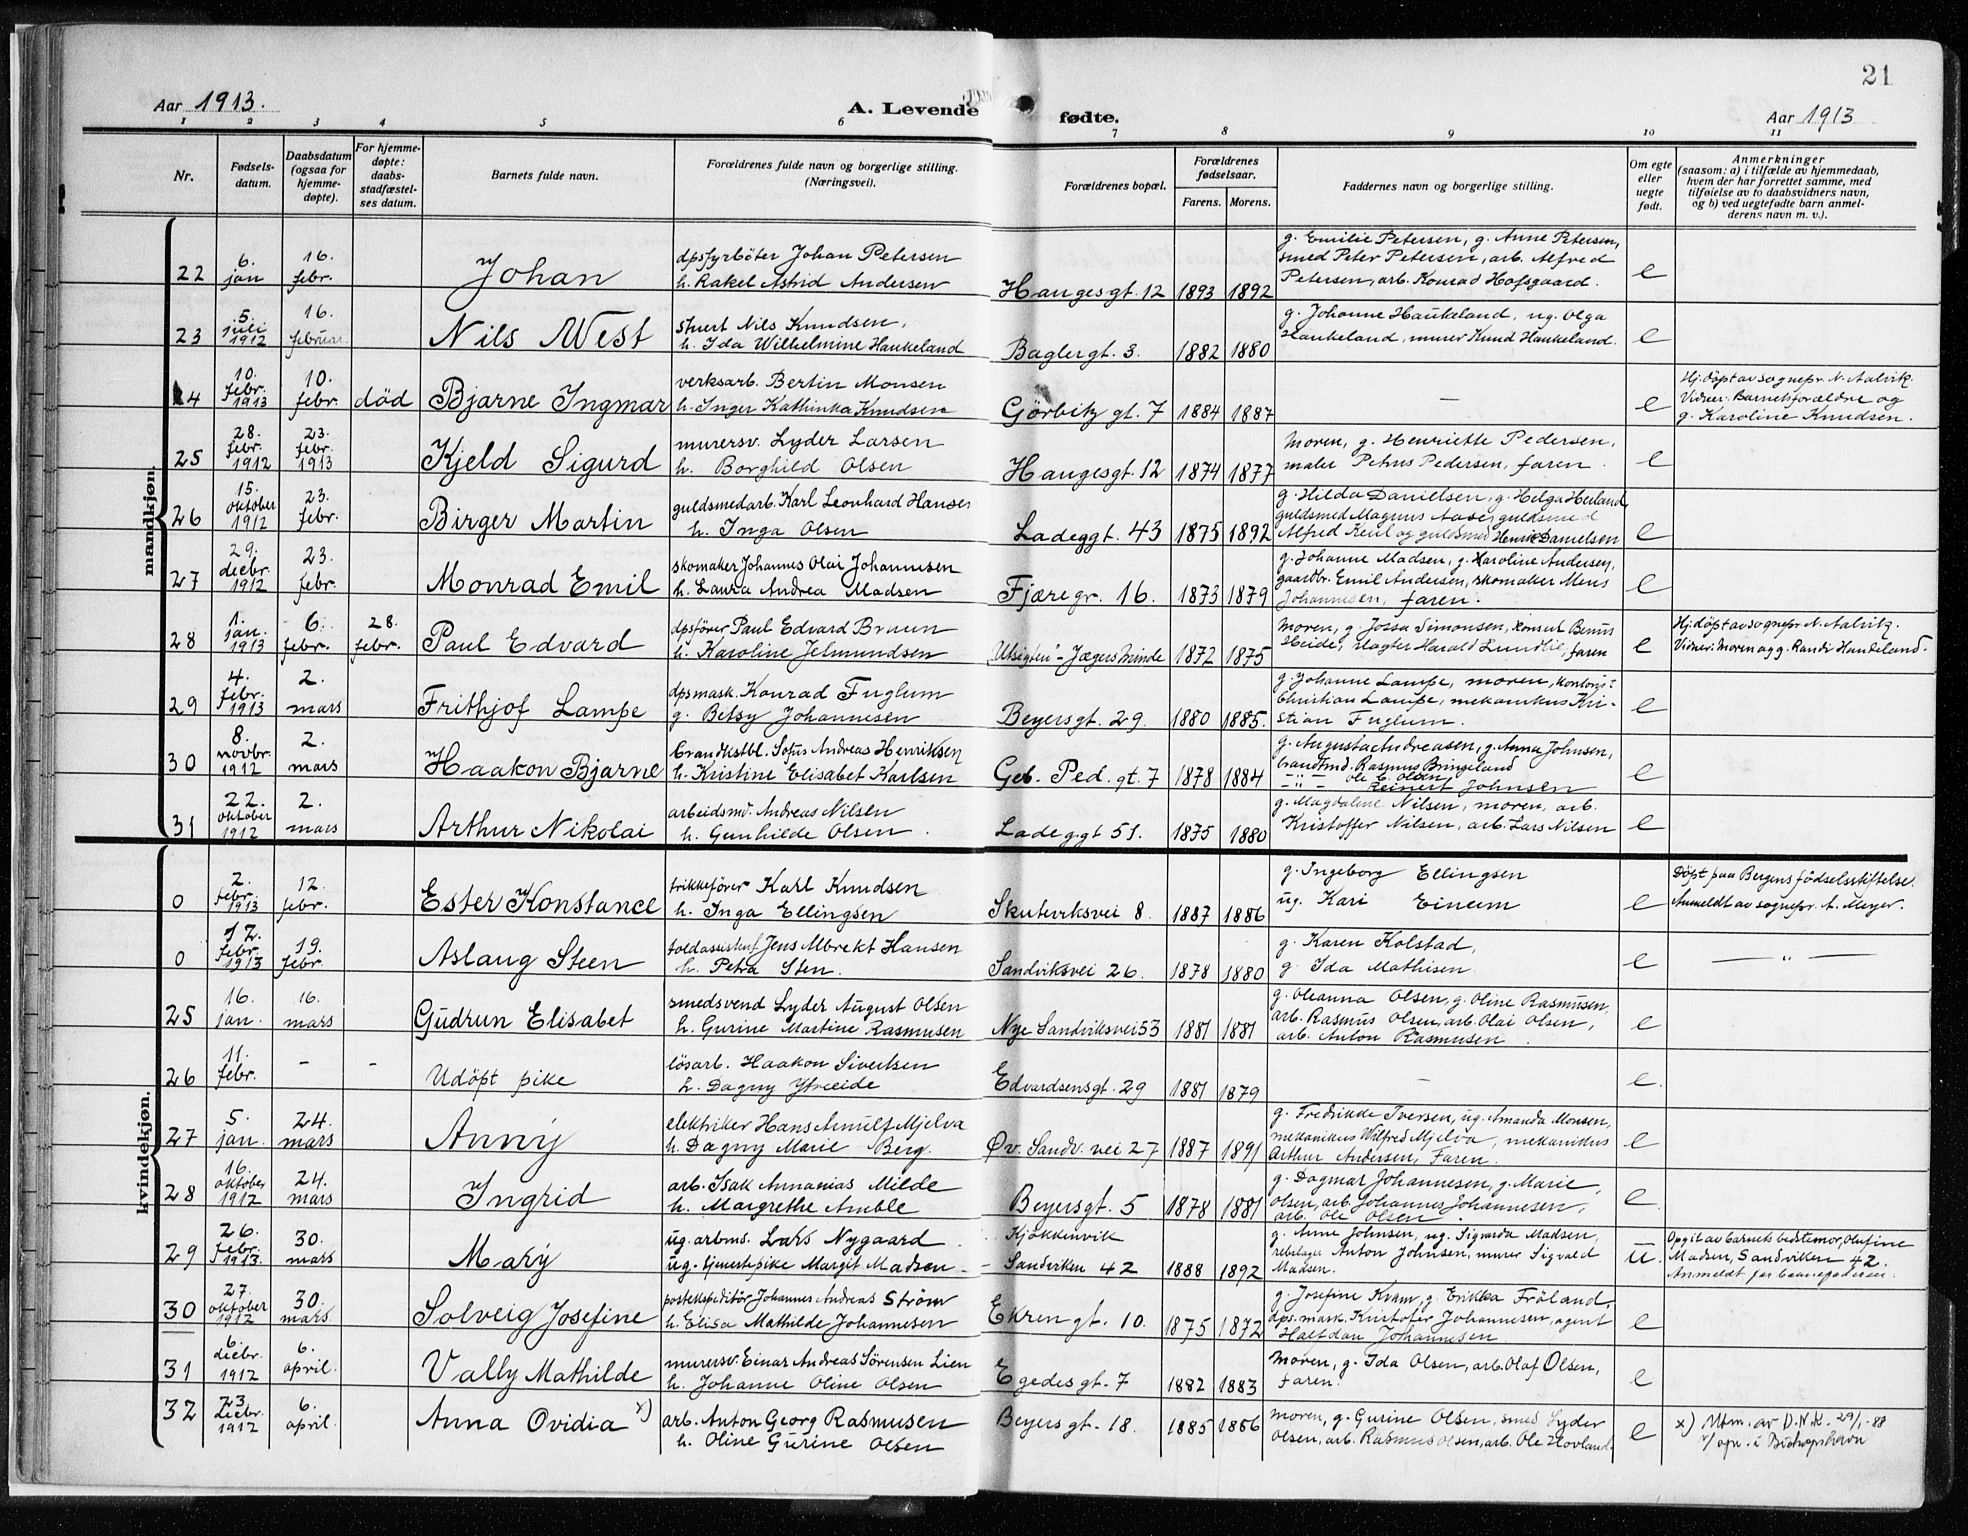 21
Aar 1913.
A. Levende fødte.
Aar 1913
1 2 3 4 5 6 7 8 9 10 11
Nr.
Fødsels-
datum.
Daabsdatum
(ogsaa for
hjemme-
døpte).
For hjemme-
døpte:
daabs-
stadfæstel-
ses datum.
Barnets fulde navn.
Forældrenes fulde navn og borgerlige stilling.
(Næringsvei).
Forældrenes bopæl.
Forældrenes
fødselsaar.
Farens. Morens.
Faddernes navn og borgerlige stilling.
Om egte
eller
uegte
født.
Anmerkninger
(saasom: a) i tilfælde av hjemmedaab,
hvem der har forrettet samme, med
tilføielse av to daabsvidners navn,
og b) ved uegtefødte barn anmel-
derens navn m. v.).
mandkjøn.
22
6.
jan
16.
febr.
Johan
dpsfyrböter Johan Petersen
h. Rakel Astrid Andersen
Hangesgt. 12 1893 1892
g. Emilie Petersen, g. Anne Petersen,
smed Peter Petersen, arb. Alfred
Petersen, arb. Konrad Hofsgaard.
e
23
5.
juli
1912
16.
februar
Nils West
stuert Nils Knudsen,
h. Ida Wilhelmine Haukeland
Baglergt. 3. 1882 1880
g. Johanne Haukeland, ug. Olga
Haukeland, murer Knud Haukeland.
e
24
10.
febr.
1913
10.
febr.
død
Bjarne Ingmar
verksarb. Bertin Monsen
h. Inger Kathinka Knudsen
Görbitz gt. 7 1884 1887
—
e
Hj. döpt av sognepr. N. Aalvik.
Vidner: Barnets forældre og
g. Karoline Knudsen.
25
28.
febr.
1912
23.
febr.
1913
Kjeld Sigurd
murersv. Lyder Larsen
h. Borghild Olsen
Hangesgt. 12 1874 1877
moren, g. Henriette Pedersen,
maler Petrus Pedersen, faren.
e
26
15.
oktober
1912
23.
febr.
Birger Martin
guldsmedarb. Karl Leonhard Hansen
h. Inga Olsen
Ladeggt. 43 1875 1892
g. Hilda Danielsen, g. Helga Herland
guldsmed Magnus Aase, guldsmed
Alfred Keul og guldsmed Henrik Danielsen
e
27
29.
decbr.
1912
23.
febr.
Monrad Emil
skomaker Johannes Olai Johannesen
h. Laura Andrea Madsen
Fjæregr. 16. 1873 1879
g. Johanne Madsen, g. Karoline Andersen,
gaardbr. Emil Andersen, skomaker Mons
Johannesen, faren.
e
28
1.
jan.
1913
6.
febr.
28.
febr.
Paul Edvard
dpsfører Paul Edvard Bruun
h. Karoline Jelmundsen
"Utsigten"- Jægers Minde 1872 1875
moren, g. Jossa Simonsen, konsul
Heide, Harald Lundlie, faren
e
Hj. döpt av sognepr. N. Aalvik.
Vidner: moren og g. Randi Haukeland.
29
4.
febr.
1913
2.
mars
Frithjof Lampe
dpsmask. Konrad Fuglum
g. Betsy Johannesen
Beyersgt. 29. 1880 1885.
g. Johanne Lampe, moren, kontorist
Christian Lampe, mekanikus Kri-
stian Fuglum.
e
30
8.
novbr.
1912
2.
mars
Haakon Bjarne
brandkstbl. Sofus Andreas Henriksen
h. Kristine Elisabet Karlsen
Geb. Ped. gt. 7 1878 1884
g. Augusta Andreasen, g. Anna Johnsen,
brandkmd. Rasmus Bringeland
—"— Ole C. Olsen
—"— Reinert Johnsen
e
31
22.
oktober
1912
2.
mars
Arthur Nikolai
arbeidsmd. Andreas Nilsen
h. Gunhilde Olsen.
Ladeggt 51. 1875 1880
g. Magdalene Nilsen, moren, arb.
Kristoffer Nilsen, arb. Lars Nilsen
e
kvindekjøn.
0
2.
febr.
1913
12.
febr.
Ester Konstance
trikkefører Karl Knudsen.
h. Inga Ellingsen
Skuteviksvei 8. 1887 1886
g. Ingeborg Ellingsen
ug. Kari Einum
e
Döpt paa Bergens födselsstiftelse.
Anmeldt av sognepr. A. Meyer.
0
12.
febr.
1913
19.
febr.
Aslaug Steen
toldassistent Jens Albrekt Hansen
h. Petra Sten.
Sandviksvei 26. 1878 1880
g. Karen Kolstad,
g. Ida Mathisen.
e
— " —
25
16.
jan.
16.
mars
Gudrun Elisabet
smedsvend Lyder August Olsen
h. Gurine Martine Rasmusen
Nye Sandviksvei 53 1881 1881
g. Oleanna Olsen, g. Oline Rasmusen,
arb. Rasmus Olsen, arb. Olai Olsen,
arb. Anton Rasmusen.
e
26
11.
febr.
- -
Udöpt pike
løsarb. Haakon Sivertsen
h. Dagny Ytreeide
Edvardsensgt. 29 1881 1879
—
e.
27
5.
jan.
24.
mars
Anny
elektriker Hans Arnulf Mjelva
h. Dagny Marie Berg.
Øv. Sandv. vei 27 1887 1891
g. Fredrikke Iversen, ug. Amanda Monsen,
mekanikus Wilfred Mjelva, mekanikus
Arthur Andersen, Faren.
e
28
16.
oktober
1912
24.
mars
Ingrid
arb. Isak Annanias Milde
h. Margrethe Amble
Beyersgt. 5 1878 1881
g. Dagmar Johannesen, g. Marie
Olsen, arb. Johannes Johannesen,
arb. Ole Olsen.
e.
29
26.
febr.
1913.
30.
mars
Mary
ug. arbmd. Lars Nygaard
ug. tjenestepike Margit Madsen
Kjøkkenvik
- Sandviken 42 1888 1892
g. Anne Johnsen, ug. Sigvarda Madsen,
rebslager Anton Johnsen, murer Sigvald
Madsen.
u.
Opgit av barnets bedstemor, Olufine
Madsen, Sandviken 42.
Anmeldt for barnefaderen.
30
27.
oktober
1912
30.
mars.
Solveig Josefine
postekspeditör Johannes Andreas Ström
h. Elisa Mathilde Johannesen
Ekrengt. 10. 1875 1872
g. Josefine Kvam, g. Erikka Fröland,
dps. mask. Kristofer Johannesen, agent
Halfdan Johannesen
e
31
6.
decbr.
1912
6.
april.
Vally Mathilde
murersv. Einar Andreas Sörensen Lien
h. Johanne Oline Olsen
Egedesgt. 7 1882 1883
Moren, g. Ida Olsen, arb. Olaf Olsen,
faren.
e
32
23.
decbr.
1912
6.
april.
Anna Ovidia x)
arb. Anton Georg Rasmusen
h. Oline Gurine Olsen
Beyersgt. 18. 1885 1886
moren, g. Gurine Olsen, smed Lyder
Olsen, arb. Rasmus Olsen, arb. Ole Hovland.
e
x) Utm. av D.N.K. 29/1-88
i